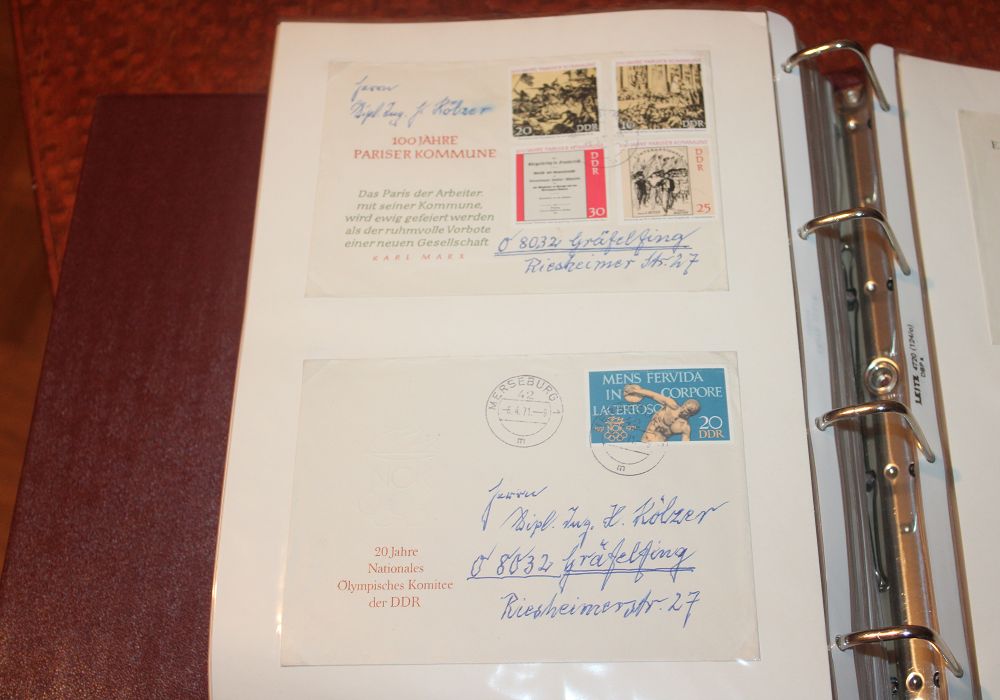 Herrn
Dipl. Ing. H. Kölzer
100 JAHRE
PARISER KOMMUNE
Das Paris der Arbeiter,
mit seiner Kommune,
wird ewig gefeiert werden
als der ruhmvolle Vorbote
einer neuen Gesellschaft
KARL MARX
100 JAHRE PARISER KOMMUNE
20 DDR
100 JAHRE PARISER KOMMUNE
10 DDR
DDR
30
100 JAHRE PARISER KOMMUNE
DDR
25
8032 Gräfelfing
Riesheimer Str. 27
MERSEBURG 1
42
-6.4.71
m
MENS FERVIDA
IN CORPORE
LACERTOSO
NOK
20
DDR
m
NOK
20 Jahre
Nationales
Olympisches Komitee
der DDR
Herrn
Dipl. Ing. H. Kölzer
8032 Gräfelfing
Riesheimerstr. 27
LEITZ 4720 (124/o)
E